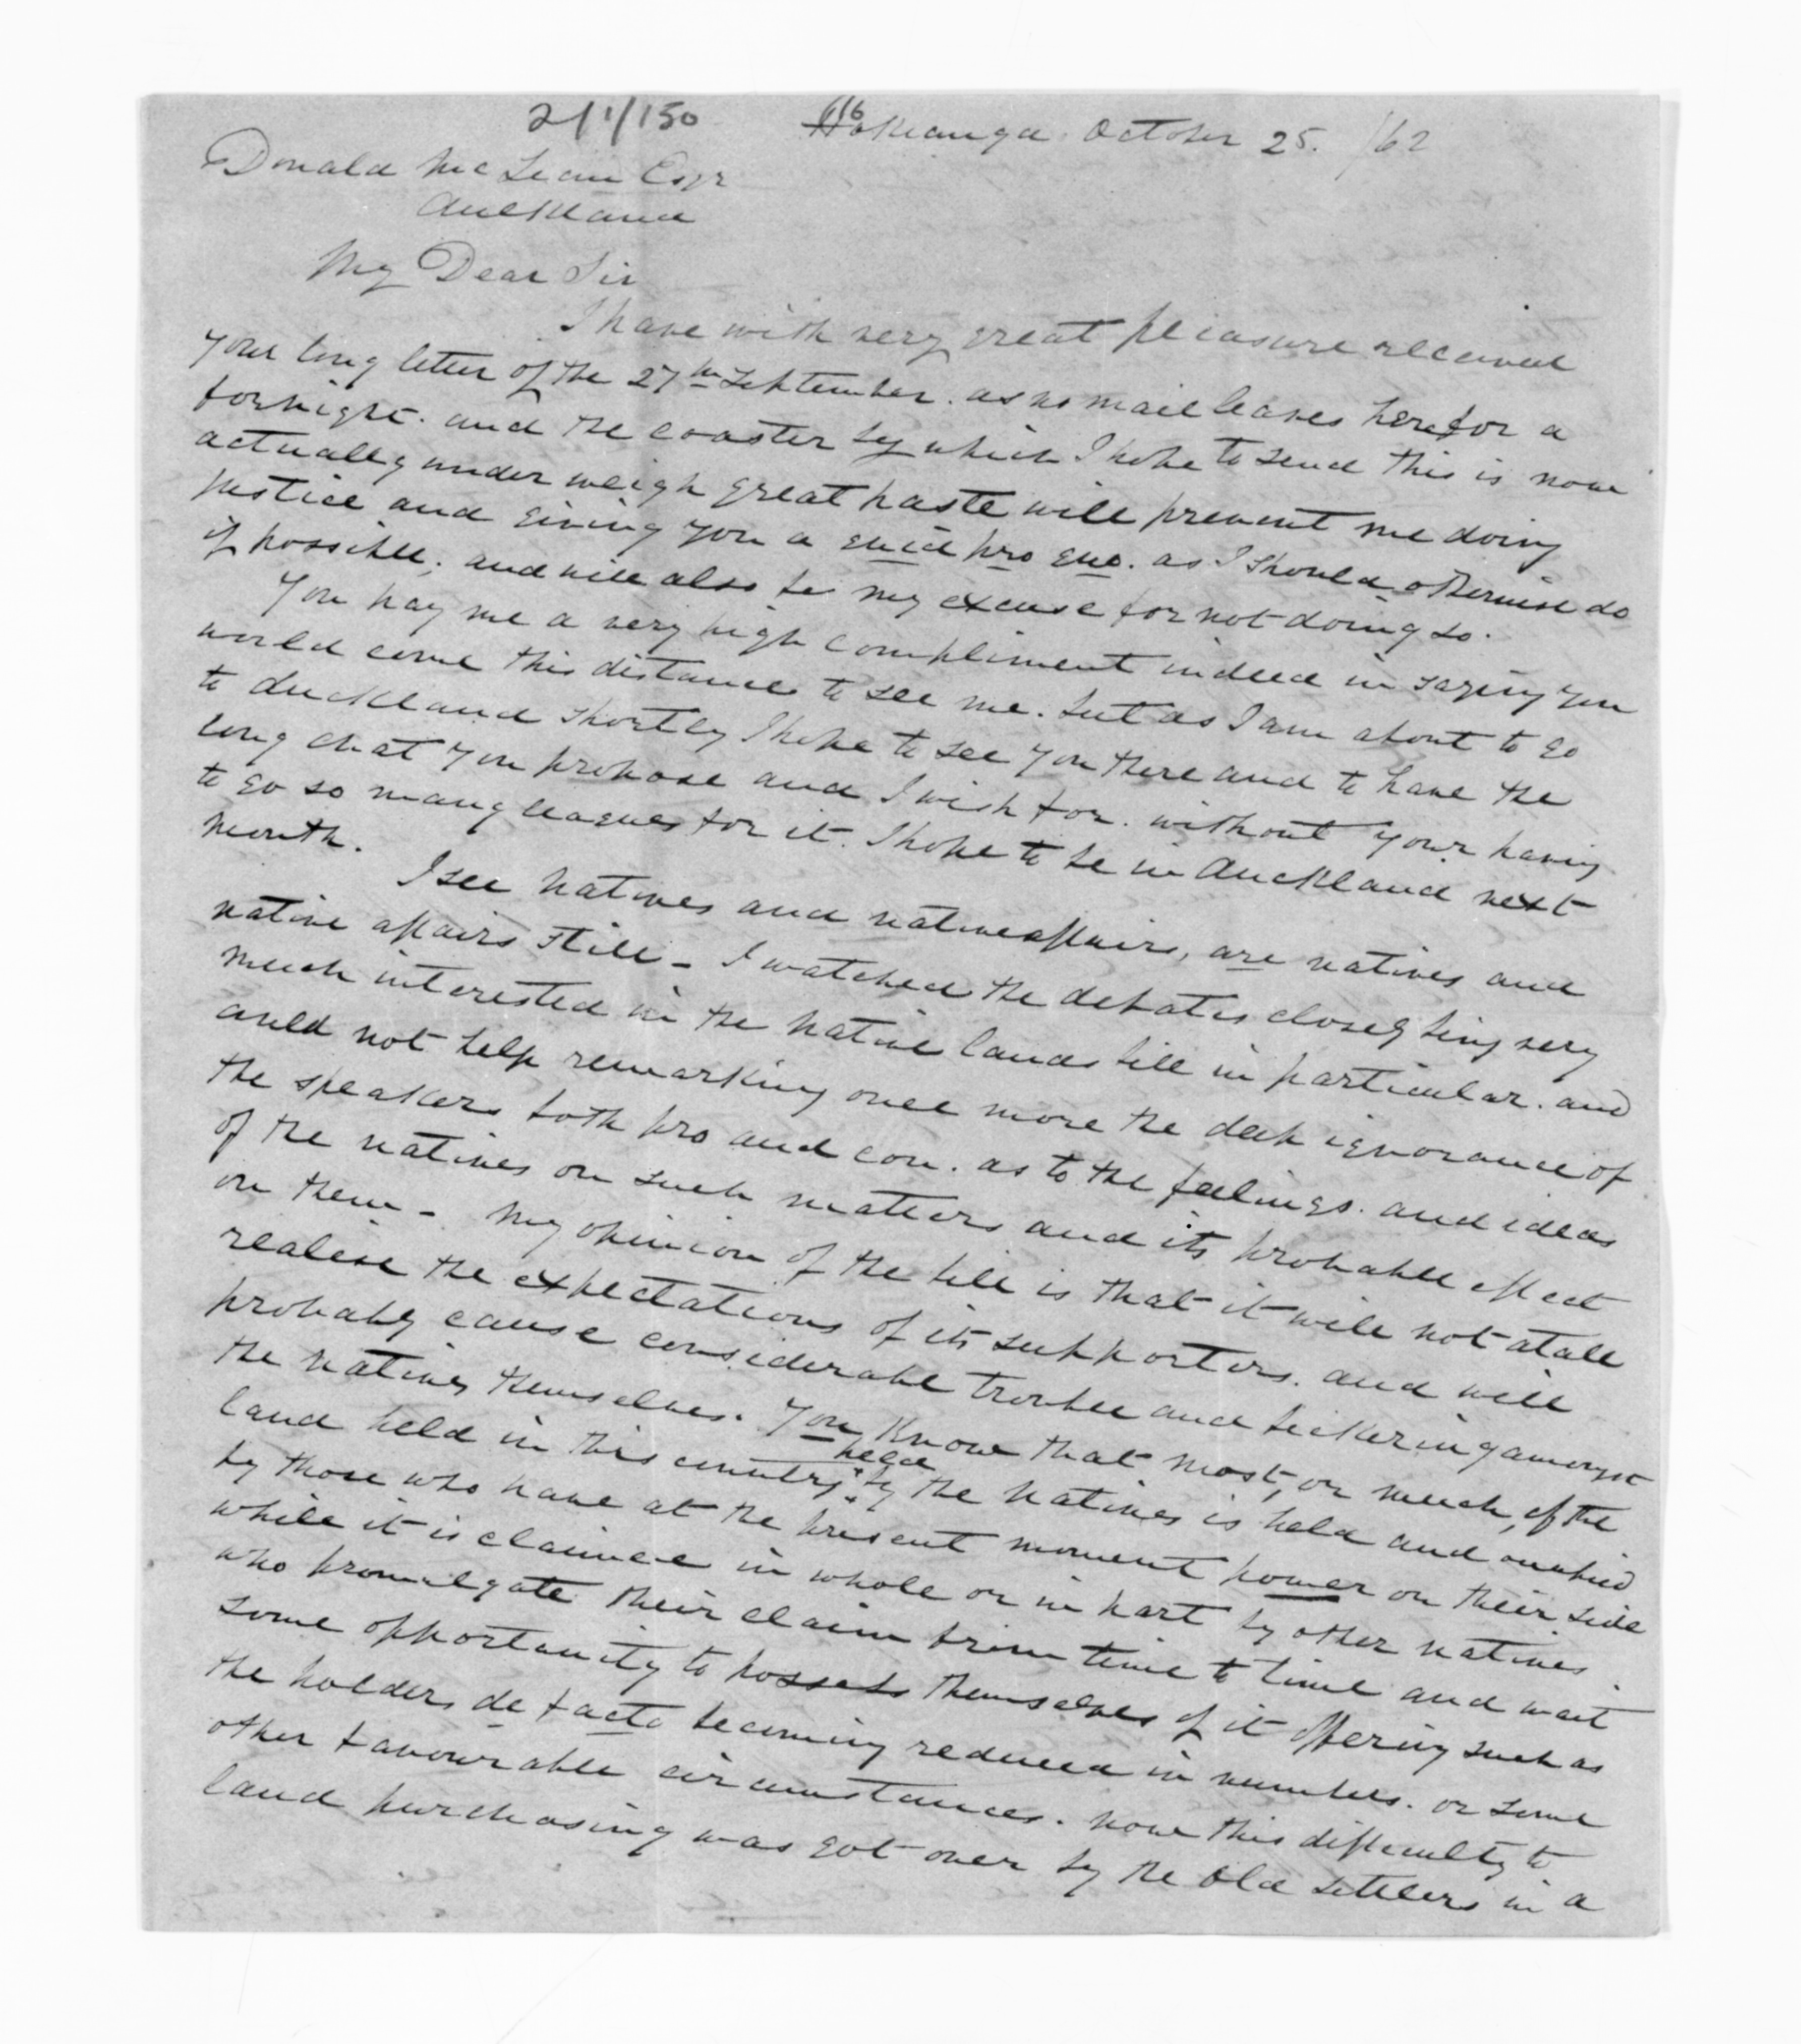 2/1/150
616
Hokianga. October 25. /62
Donald McLean Esqr
Auckland
My Dear Sir
I have with very great pleasure received
your long letter of the 27th September. as no mail leaves here for a
fornight. and the coaster by which I hope to send this is now
actually under weigh great haste will prevent me doing
justice and giving you a quid pro quo. as I should otherwise do
if possible; and will also be my excuse for not doing so.
You pay me a very high compliment indeed in saying you
would come this distance to see me. but as I am about to go
to Auckland shortly I hope to see you there and to have the
long chat you propose and I wish for. without your having
to go so many leagues for it. I hope to be in Auckland next
month.
I see natives and native affairs, are natives and
native affairs still - I watched the debates closely being very
much interested in the native lands bill in particular. and
could not help remarking once more the deep ignorance of
the speakers both pro and con. as to the feelings. and ideas
of the natives on such matters and its probable effect
on them - My opinion of the bill is that it will not at all
realise the expectations of its supporters. and will
probably cause considerable trouble and bickering amongst
the natives themselves. You know that most, or much, of the
land held in this country held by the natives is held and occupied
by those who have at the present moment power on their side
while it is claimed in whole or in part by other natives
who promulgate their claim from time to time and wait
some opportunity to possess themselves of it offering such as
the holders de facto becoming reduced in numbers. or some
other favourable circumstances. now this difficulty to
land purchasing was got over by the old settlers in a